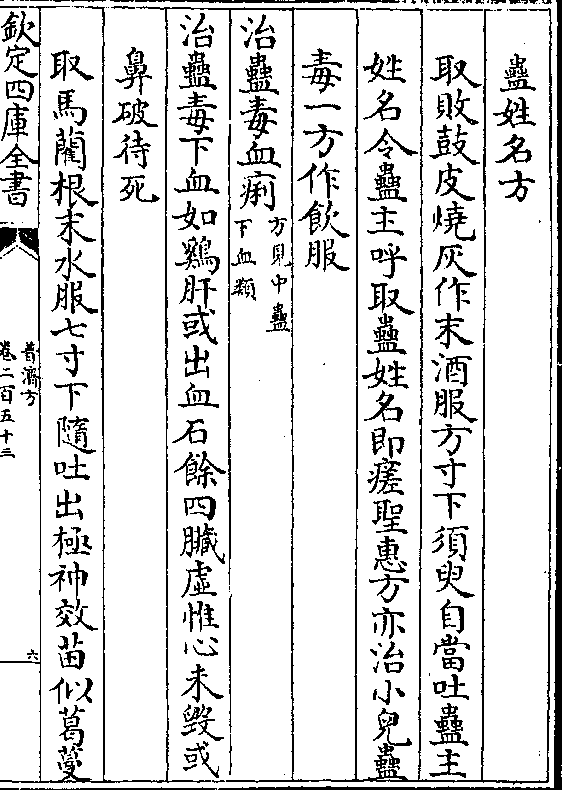 蠱姓名方
取敗鼓皮燒灰作末酒服方寸下須臾自當吐蠱主
姓名令蠱主呼取蠱姓名即瘥聖惠方亦治小兒蠱
毒一方作飲服
治蠱毒血痢方見中蠱下血類
治蠱毒下血如鷄肝或出血石餘四臟虛惟心未毀或
鼻破待死
取馬藺根末水服七寸下隨吐出極神效苗似葛蔓
欽定四庫全書
普濟方
卷二百五十三
六